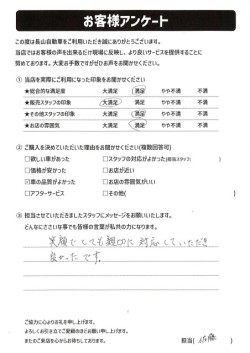 お客様アンケート
この度は長山自動車をご利用いただき誠にありがとうございます。
当店ではお客様の声を出来るだけ現場に反映し、より良いサービスを提供することに
努めております。大変お手数ですがぜひお声をお聞かせください。
① 当店を実際にご利用になった印象をお聞かせください
★総合的な満足度 大満足 満足 やや不満 不満
★販売スタッフの印象 大満足 満足 やや不満 不満
★その他スタッフの印象 大満足 満足 やや不満 不満
★お店の雰囲気 大満足 満足 やや不満 不満
② ご購入を決めていただいた理由をお聞かせください(複数回答可)
□欲しい車があった □スタッフの対応がよかった(担当スタッフ: )
□価格が安かった □お店が近い
☑車の品質がよかった □お店の雰囲気がいい
□アフターサービス □その他( )
③ 担当させていただきましたスタッフにメッセージをお願いいたします。
どんなにささいな事でも皆様の言葉が私共の力になります。
笑顔でとても親切に対応していただき
良かったです。
ご協力に心よりお礼を申し上げます。
よろしくお引立てご愛顧のほどお願い申し上げます。
またのご来店を心からお待ちしております。 担当( 佐藤 )